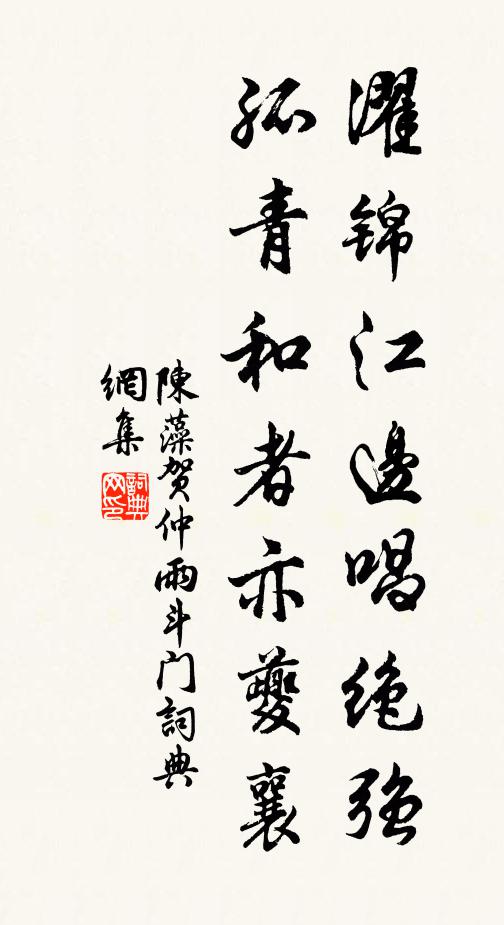 濯锦江邊唱绝强
孤青和者亦夔襄
陳藻賀仲雨斗门詞典
網集
詞典网印